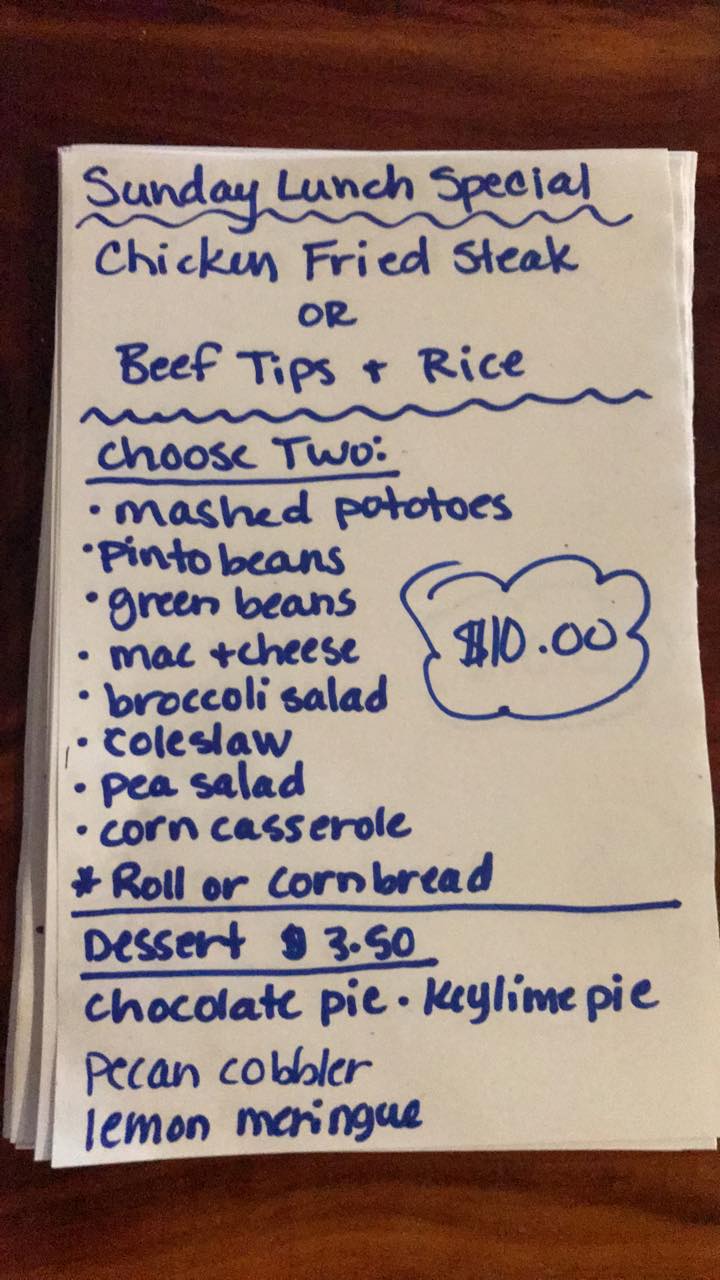 Sunday Lunch Special
Chicken Fried Steak
OR
Beef Tips + Rice
Choose Two:
• mashed pototoes
• Pinto beans
• green beans
• mac + cheese
$10.00
• broccoli salad
• coleslaw
• pea salad
• corn casserole
* Roll or cornbread
Dessert $3.50
Chocolate pie • Keylime pie
Pecan cobbler
lemon meringue